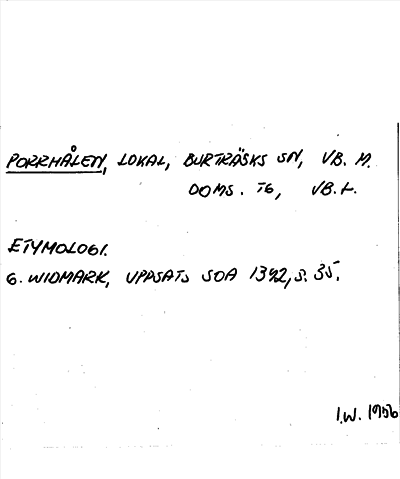 PORRMÅLEN, LOKAL, BURTRÄSKS SN, VB. M.
DOMS. TG, VB. L.
ETYMOLOGI.
G. WIDMARK, UPPSATS SOA 1392, S. 35.
I.W. 1956